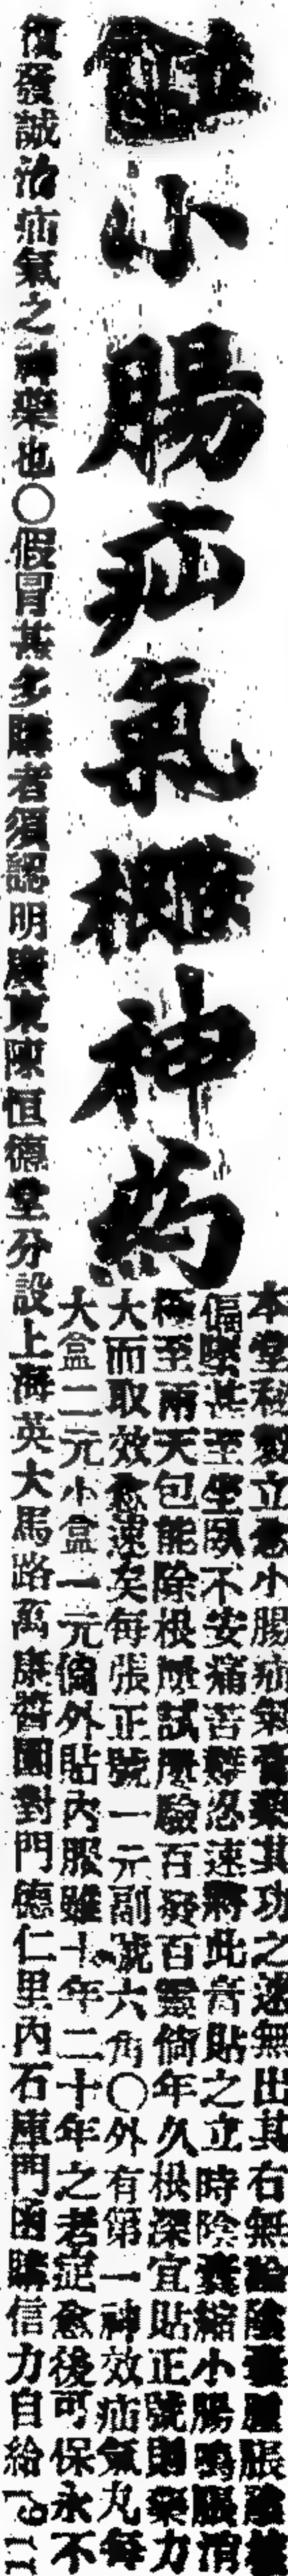 小腸疝氣神药
本堂秘製立愈小腸疝氣膏藥其功之速無出其右無論陰囊腫脹陰核
偏墜甚至坐臥不安痛苦難忍速將此膏貼之立時陰囊縮小腸鳴脹消
極至兩天包能除根屢試屢驗百發百靈倘年久根深宜貼正號則藥力
大而取效愈速矣每張正號一元副號六角〇外有第一神效疝氣丸每
大盒二元小盒一元倘外貼內服雖十年二十年之老疝愈後可保永不
復發誠治疝氣之神藥也〇假冒甚多購者須認明廣東陳恒德堂分設上海英大馬路萬康醬園對門德仁里內石庫門函購信力自給